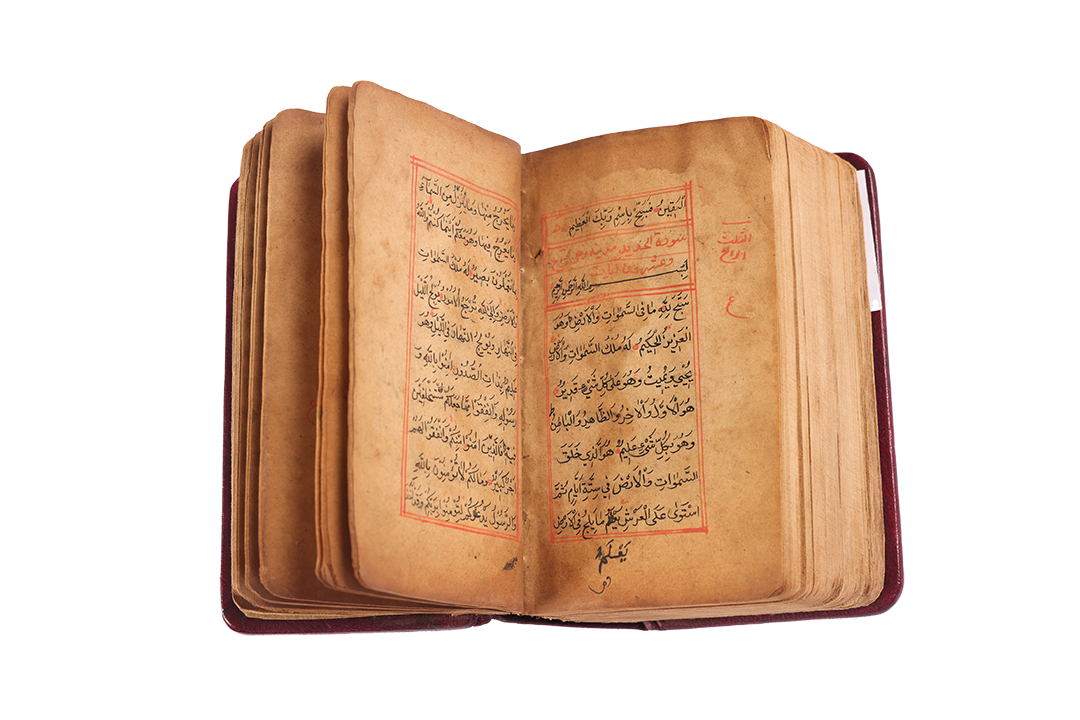 الْيَقِينِ فَسَبِّحْ بِاسْمِ رَبِّكَ الْعَظِيمِ
سورة الحديد وهي
وعشرون
بسم الله الرحمن الرحيم
سَبَّحَ لِلّهِ مَا فِي السَّمٰوَاتِ وَالْاَرْضِ وَهُوَ
الْعَزِيزُ الْحَكِيمُ لَهُ مُلْكُ السَّمٰوَاتِ وَالْاَرْضِ
يُحْيِي وَيُمِيتُ وَهُوَ عَلٰى كُلِّ شَيْءٍ قَدِيرٌ
هُوَ الْاَوَّلُ وَالْاٰخِرُ وَالظَّاهِرُ وَالْبَاطِنُ
وَهُوَ بِكُلِّ شَيْءٍ عَلِيمٌ هُوَ الَّذِي خَلَقَ
السَّمٰوَاتِ وَالْاَرْضَ فِي سِتَّةِ اَيَّامٍ ثُمَّ
اسْتَوٰى عَلَى الْعَرْشِ يَعْلَمُ مَا يَلِجُ فِي الْاَرْضِ
يَعْلَمُ
الثلث
ع
وَمَا يَخْرُجُ مِنْهَا وَمَا يَنْزِلُ مِنَ السَّمَاءِ
وَمَا يَعْرُجُ فِيهَا وَهُوَ مَعَكُمْ اَيْنَمَا كُنْتُمْ وَاللّهُ
بِمَا تَعْمَلُونَ بَصِيرٌ لَهُ مُلْكُ السَّمٰوَاتِ
وَالْاَرْضِ وَاِلَى اللّهِ تُرْجَعُ الْاُمُورُ يُولِجُ اللَّيْلَ
فِي النَّهَارِ وَيُولِجُ النَّهَارَ فِي اللَّيْلِ وَهُوَ
عَلِيمٌ بِذَاتِ الصُّدُورِ اٰمِنُوا بِاللّهِ وَ
رَسُولِهِ وَاَنْفِقُوا مِمَّا جَعَلَكُمْ مُسْتَخْلَفِينَ
فِيهِ فَالَّذِينَ اٰمَنُوا مِنْكُمْ وَاَنْفَقُوا لَهُمْ
اَجْرٌ كَبِيرٌ وَمَا لَكُمْ لَا تُؤْمِنُونَ بِاللّهِ
وَالرَّسُولُ يَدْعُوكُمْ لِتُؤْمِنُوا بِرَبِّكُمْ وَقَدْ